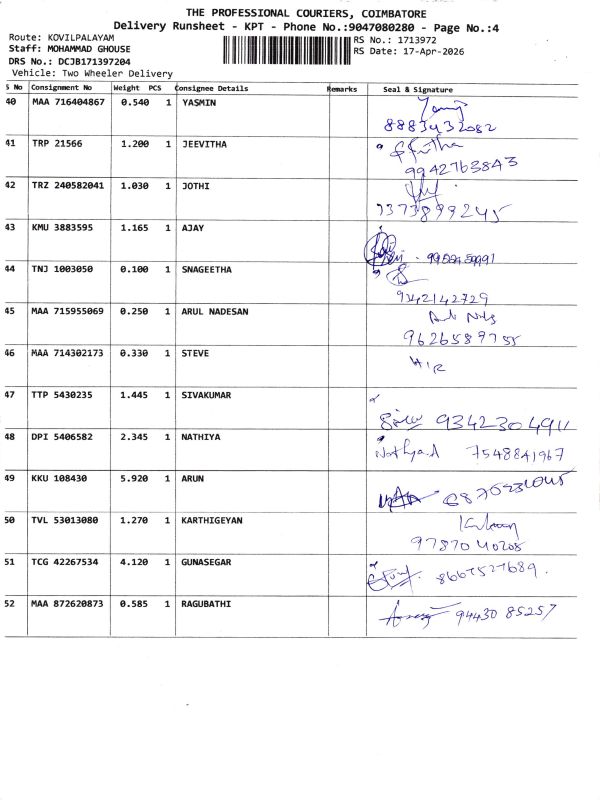 THE PROFESSIONAL COURIERS, COIMBATORE
Delivery Runsheet - KPT - Phone No.:9047080280 - Page No.:4
Route: KOVILPALAYAM
RS No.: 1713972
Staff: MOHAMMAD GHOUSE
RS Date: 17-Apr-2026
DRS No.: DCJB171397204
Vehicle: Two Wheeler Delivery
S No Consignment No Weight PCS Consignee Details Remarks Seal & Signature
40 MAA 716404867 0.540 1 YASMIN
8883432082
41 TRP 21566 1.200 1 JEEVITHA
9942763843
42 TRZ 240582041 1.030 1 JOTHI
7373899245
43 KMU 3883595 1.165 1 AJAY
44 TNJ 1003050 0.100 1 SNAGEETHA
9342142729
45 MAA 715955069 0.250 1 ARUL NADESAN
9626589755
46 MAA 714302173 0.330 1 STEVE
H/R
47 TTP 5430235 1.445 1 SIVAKUMAR
9342304911
48 DPI 5406582 2.345 1 NATHIYA
Nathya.A 7548841967
49 KKU 108430 5.920 1 ARUN
50 TVL 53013080 1.270 1 KARTHIGEYAN
9787040205
51 TCG 42267534 4.120 1 GUNASEGAR
8667527689.
52 MAA 872620873 0.585 1 RAGUBATHI
94430 85257